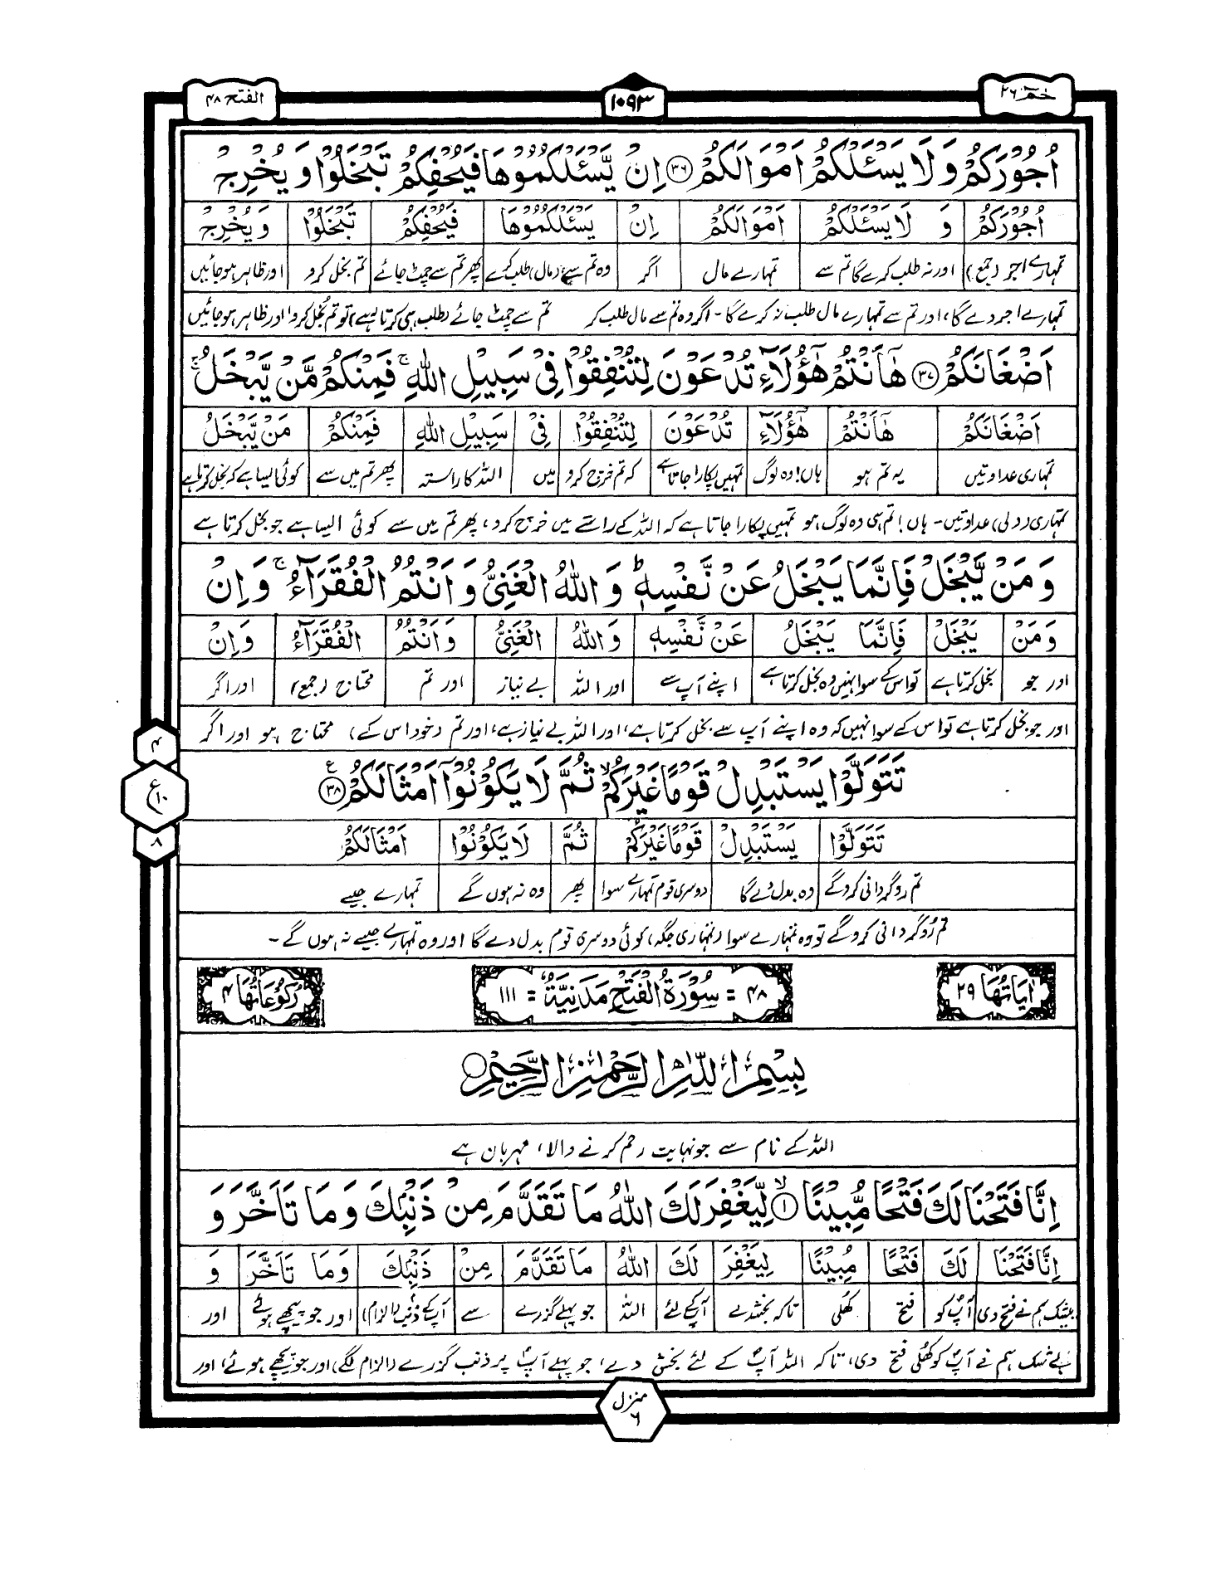 حٰمٓ ۲۶
۱۰۹۳
الفتح ۴۸
اُجُوْرَكُمْ وَلَا يَسْـَٔلْكُمْ اَمْوَالَكُمْ ۝۳۶ اِنْ يَّسْـَٔلْكُمُوْهَا فَيُحْفِكُمْ تَبْخَلُوْا وَيُخْرِجْ
اُجُوْرَكُمْ وَ لَا يَسْـَٔلْكُمْ اَمْوَالَكُمْ اِنْ يَسْـَٔلْكُمُوْهَا فَيُحْفِكُمْ تَبْخَلُوْا وَيُخْرِجْ
تمہارے اجر (جمع) اور نہ طلب کرے گا تم سے تمہارے مال اگر وہ تم سے (مال) طلب کرے پھر تم سے چمٹ جائے تم بخل کرو اور ظاہر ہو جائیں
تمہارے اجر دے گا، اور تم سے تمہارے مال طلب نہ کرے گا۔ اگر وہ تم سے مال طلب کر تم سے چمٹ جائے (طلب ہی کرتا رہے) تو تم بخل کرو اور ظاہر ہو جائیں
اَضْغَانَكُمْ ۝۳۷ هٰٓاَنْتُمْ هٰٓؤُلَآءِ تُدْعَوْنَ لِتُنْفِقُوْا فِيْ سَبِيْلِ اللّٰهِ ۚ فَمِنْكُمْ مَّنْ يَّبْخَلُ ۚ
اَضْغَانَكُمْ هٰٓاَنْتُمْ هٰٓؤُلَآءِ تُدْعَوْنَ لِتُنْفِقُوْا فِيْ سَبِيْلِ اللّٰهِ فَمِنْكُمْ مَنْ يَّبْخَلُ
تمہاری عداوتیں یہ تم ہو ہاں! وہ لوگ تمہیں پکارا جاتا ہے کہ تم خرچ کرو میں اللہ کا راستہ پھر تم میں سے کوئی ایسا ہے کہ بخل کرتا ہے
تمہاری (دلی) عداوتیں۔ ہاں! تم ہی وہ لوگ ہو تمہیں پکارا جاتا ہے کہ اللہ کے راستے میں خرچ کرو، پھر تم میں سے کوئی ایسا ہے جو بخل کرتا ہے
وَمَنْ يَّبْخَلْ فَاِنَّمَا يَبْخَلُ عَنْ نَّفْسِهٖ ؕ وَاللّٰهُ الْغَنِيُّ وَاَنْتُمُ الْفُقَرَآءُ ۚ وَاِنْ
وَمَنْ يَبْخَلْ فَاِنَّمَا يَبْخَلُ عَنْ نَّفْسِهٖ وَاللّٰهُ الْغَنِيُّ وَاَنْتُمُ الْفُقَرَآءُ وَاِنْ
اور جو بخل کرتا ہے تو اس کے سوا نہیں وہ بخل کرتا ہے اپنے آپ سے اور اللہ بے نیاز اور تم محتاج (جمع) اور اگر
اور جو بخل کرتا ہے تو اس کے سوا نہیں کہ وہ اپنے آپ سے بخل کرتا ہے، اور اللہ بے نیاز ہے، اور تم (خود اس کے) محتاج ہو اور اگر
تَتَوَلَّوْا يَسْتَبْدِلْ قَوْمًا غَيْرَكُمْ ۙ ثُمَّ لَا يَكُوْنُوْٓا اَمْثَالَكُمْ ۝۳۸ ع
تَتَوَلَّوْا يَسْتَبْدِلْ قَوْمًا غَيْرَكُمْ ثُمَّ لَا يَكُوْنُوْٓا اَمْثَالَكُمْ
تم روگردانی کروگے وہ بدل دے گا دوسری قوم تمہارے سوا پھر وہ نہ ہوں گے تمہارے جیسے
تم روگردانی کروگے تو وہ تمہارے سوا (تمہاری جگہ) کوئی دوسری قوم بدل دے گا اور وہ تمہارے جیسے نہ ہوں گے۔
۴
ع ۱۰
۸
اٰيَاتُهَا ۲۹
۴۸ = سُوْرَةُ الْفَتْحِ مَدَنِيَّةٌ = ۱۱۱
رُكُوْعَاتُهَا ۴
بِسْمِ اللّٰهِ الرَّحْمٰنِ الرَّحِيْمِ
اللہ کے نام سے جو نہایت رحم کرنے والا، مہربان ہے
اِنَّا فَتَحْنَا لَكَ فَتْحًا مُّبِيْنًا ۙ۝۱ لِّيَغْفِرَ لَكَ اللّٰهُ مَا تَقَدَّمَ مِنْ ذَنْۢبِكَ وَمَا تَاَخَّرَ وَ
اِنَّا فَتَحْنَا لَكَ فَتْحًا مُبِيْنًا لِيَغْفِرَ لَكَ اللّٰهُ مَا تَقَدَّمَ مِنْ ذَنْۢبِكَ وَمَا تَاَخَّرَ وَ
بیشک ہم نے فتح دی آپؐ کو فتح کھلی تاکہ بخشدے آپ کے لئے اللہ جو پہلے گزرے سے آپ کے ذنب (الزام) اور جو پیچھے ہوئے اور
بے شک ہم نے آپؐ کو کھلی فتح دی، تاکہ اللہ آپؐ کے لئے بخش دے، جو پہلے آپؐ پر ذنب گزرے (الزام لگے) اور جو پیچھے ہوئے، اور
منزل ۶